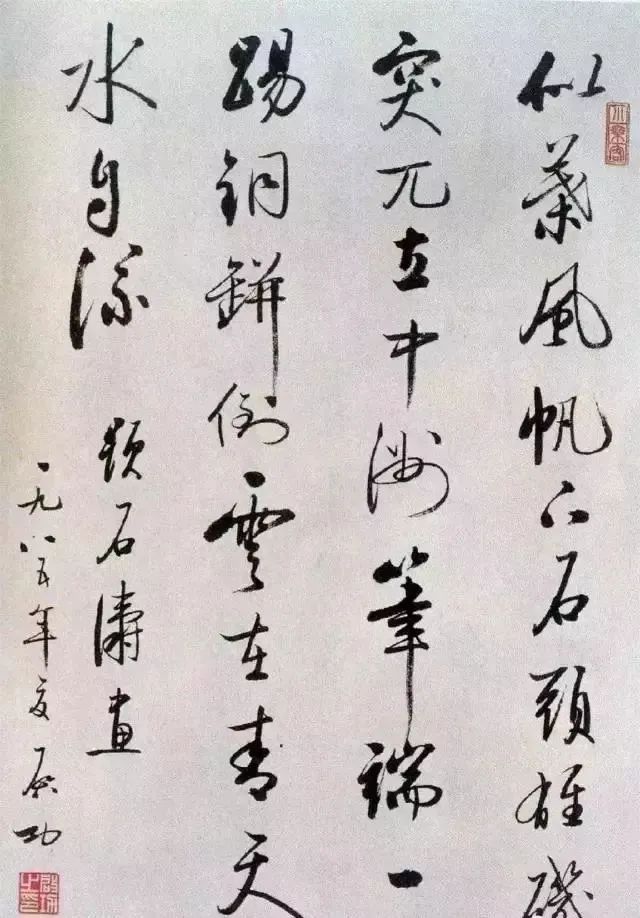 似葉風帆下石頭雄磯
突兀立中洲筆端一
踢銅缾倒雲在青天
水自流
題石濤畫
一九八五年夏啟功